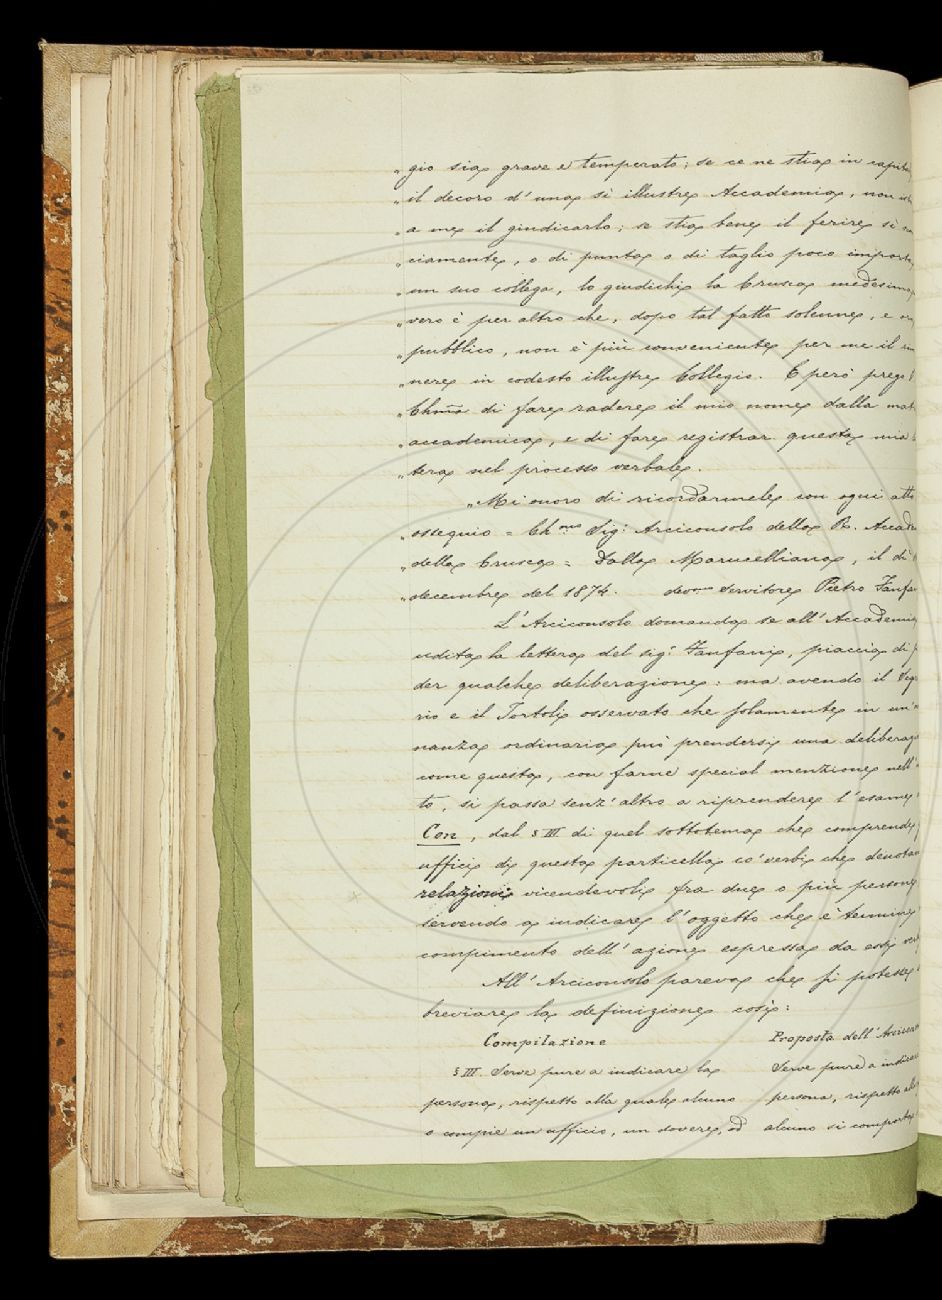 „gio sia grave e temperato; se ce ne stia in
„il decoro d'una sì illustre Accademia, non
„a me il giudicarlo; se stia bene il ferire sì
„ciamente, o di punta o di taglio poco importa
„un suo collega, lo giudichi la Crusca medesima
„vero è per altro che, dopo tal fatto solenne, e
„pubblico, non è più conveniente per me il
„nere in codesto illustre Collegio. E però prego
„Chma di fare radere il mio nome dalla
„accademica, e di fare registrar questa mia
„tera nel processo verbale.
„Mi onoro di ricordarmele con ogni atto
„ossequio = Chmo Sig: Arciconsolo della R. Accad
„della Crusca = Dalla Marucelliana, il dì
„decembre del 1874. devmo servitore Pietro Fanfa
L'Arciconsolo domanda se all'Accademia
udita la lettera del sig: Fanfani, piaccia di
der qualche deliberazione: ma avendo il Seg
rio e il Tortoli osservato che solamente in un'
nanza ordinaria può prendersi una deliberaz
come questa, con farne special menzione nell'
to, si passa senz'altro a riprendere l'esame
Con, dal § III di quel sottotema che comprende
uffici di questa particella co' verbi che denotan
relazioni vicendevoli fra due o più persone
servendo a indicare l'oggetto che è termine
compimento dell'azione espressa da essi ver
All'Arciconsolo pareva che si potesse
breviare la definizione così:
Compilazione Proposta dell'Arcicon
§ III. Serve pure a indicare la Serve pure a indicar
persona, rispetto alla quale alcuno persona, rispetto alla
o compie un ufficio, un dovere, od alcuno si comporta